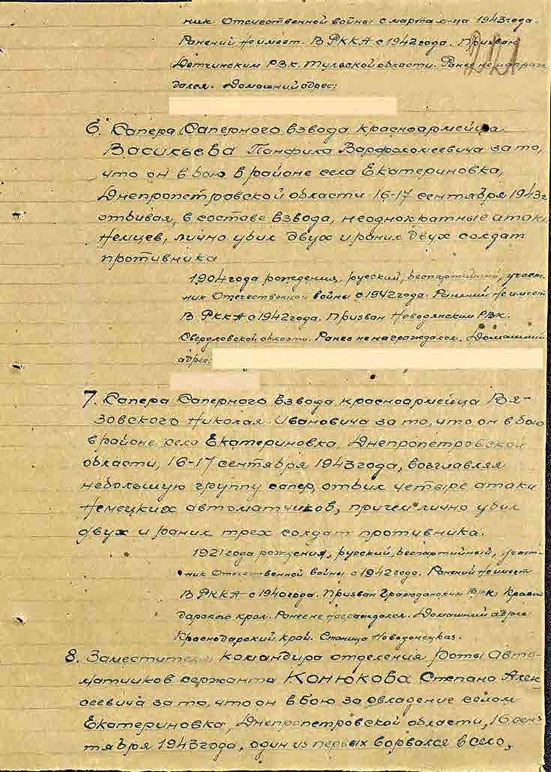 ник Отечественной войны с марта м-ца 1943 года.
Ранений не имеет. В РККА с 1942 года. Призван
РВК, Тульской области. Ранее не награж-
дался. Домашний адрес:
6. Сапера Саперного взвода красноармейца
Васильева Панфила Варфоломеевича за то,
что он в бою в районе села Екатериновка,
Днепропетровской области 16-17 сентября 1943 г.
отбивал, в составе взвода, неоднократные атаки
немцев, лично убил двух и ранил двух солдат
противника
1904 года рождения, русский, беспартийный, участ-
ник Отечественной войны с 1942 года. Ранений не имеет
В РККА с 1942 года. Призван РВК.
Свердловской области. Ранее не награждался. Домашний
адрес.
7. Сапера Саперного взвода красноармейца Вя-
зовского Николая Ивановича за то, что он в бою
в районе села Екатериновка, Днепропетровской
области, 16-17 сентября 1943 года, возглавляя
небольшую группу сапер, отбил четыре атаки
немецких автоматчиков, причем лично убил
двух и ранил трех солдат противника.
1921 года рождения, русский, беспартийный, участ-
ник Отечественной войны с 1942 года. Ранений не имеет
В РККА с 1940 года. Призван РВК Красно
дарского края. Ранее не награждался. Домашний адрес:
Краснодарский край. Станица Новодонецкая.
8. Заместителя командира отделения роты авто-
матчиков сержанта Конюкова Степана Алек
сеевича за то, что он в бою за овладение селом
Екатериновка, Днепропетровской области, 16 сен
тября 1943 года, один из первых ворвался в село,